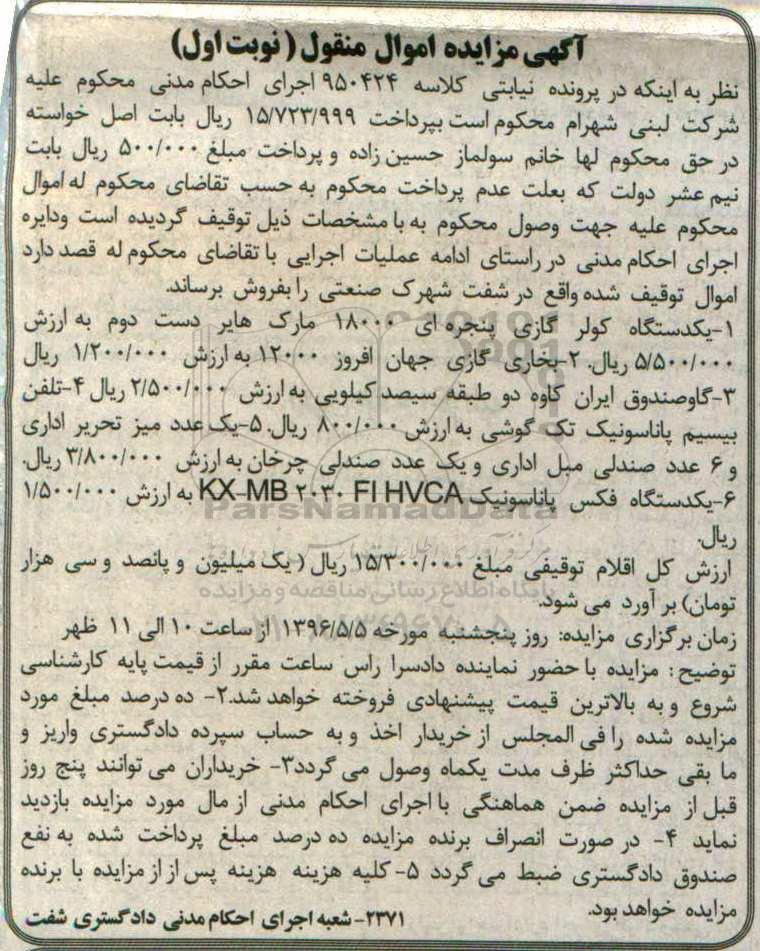 آگهی مزایده اموال منقول (نوبت اول)
نظر به اینکه در پرونده نیابتی کلاسه ۹۵۰۴۲۴ اجرای احکام مدنی محکوم علیه
شرکت لبنی شهرام محکوم است بپرداخت ۱۵/۷۲۳/۹۹۹ ریال بابت اصل خواسته
در حق محکوم لها خانم سولماز حسین زاده و پرداخت مبلغ ۵۰۰/۰۰۰ ریال بابت
نیم عشر دولت که بعلت عدم پرداخت محکوم به حسب تقاضای محکوم له اموال
محکوم علیه جهت وصول محکوم به با مشخصات ذیل توقیف گردیده است ودایره
اجرای احکام مدنی در راستای ادامه عملیات اجرایی با تقاضای محکوم له قصد دارد
اموال توقیف شده واقع در شفت شهرک صنعتی را بفروش برساند.
۱-یکدستگاه کولر گازی پنجره ای ۱۸۰۰۰ مارک هایر دست دوم به ارزش
۵/۵۰۰/۰۰۰ ریال. ۲-بخاری گازی جهان افروز ۱۲۰۰۰ به ارزش ۱/۲۰۰/۰۰۰ ریال
۳-گاوصندوق ایران کاوه دو طبقه سیصد کیلویی به ارزش ۲/۵۰۰/۰۰۰ ریال ۴-تلفن
بیسیم پاناسونیک تک گوشی به ارزش ۸۰۰/۰۰۰ ریال. ۵-یک عدد میز تحریر اداری
و ۶ عدد صندلی مبل اداری و یک عدد صندلی چرخان به ارزش ۳/۸۰۰/۰۰۰ ریال.
۶-یکدستگاه فکس پاناسونیک KX-MB ۲۰۳۰ FI HVCA به ارزش ۱/۵۰۰/۰۰۰
ریال.
ارزش کل اقلام توقیفی مبلغ ۱۵/۳۰۰/۰۰۰ ریال ( یک میلیون و پانصد و سی هزار
تومان) بر آورد می شود.
زمان برگزاری مزایده: روز پنجشنبه مورخه ۱۳۹۶/۵/۵ از ساعت ۱۰ الی ۱۱ ظهر
توضیح: مزایده با حضور نماینده دادسرا راس ساعت مقرر از قیمت پایه کارشناسی
شروع و به بالاترین قیمت پیشنهادی فروخته خواهد شد.۲- ده درصد مبلغ مورد
مزایده شده را فی المجلس از خریدار اخذ و به حساب سپرده دادگستری واریز و
ما بقی حداکثر ظرف مدت یکماه وصول می گردد۳- خریداران می توانند پنج روز
قبل از مزایده ضمن هماهنگی با اجرای احکام مدنی از مال مورد مزایده بازدید
نماید ۴- در صورت انصراف برنده مزایده ده درصد مبلغ پرداخت شده به نفع
صندوق دادگستری ضبط می گردد ۵-کلیه هزینه هزینه پس از از مزایده با برنده
مزایده خواهد بود.
۲۳۷۱-شعبه اجرای احکام مدنی دادگستری شفت
ParsNamadData
پایگاه اطلاع رسانی مناقصه و مزایده